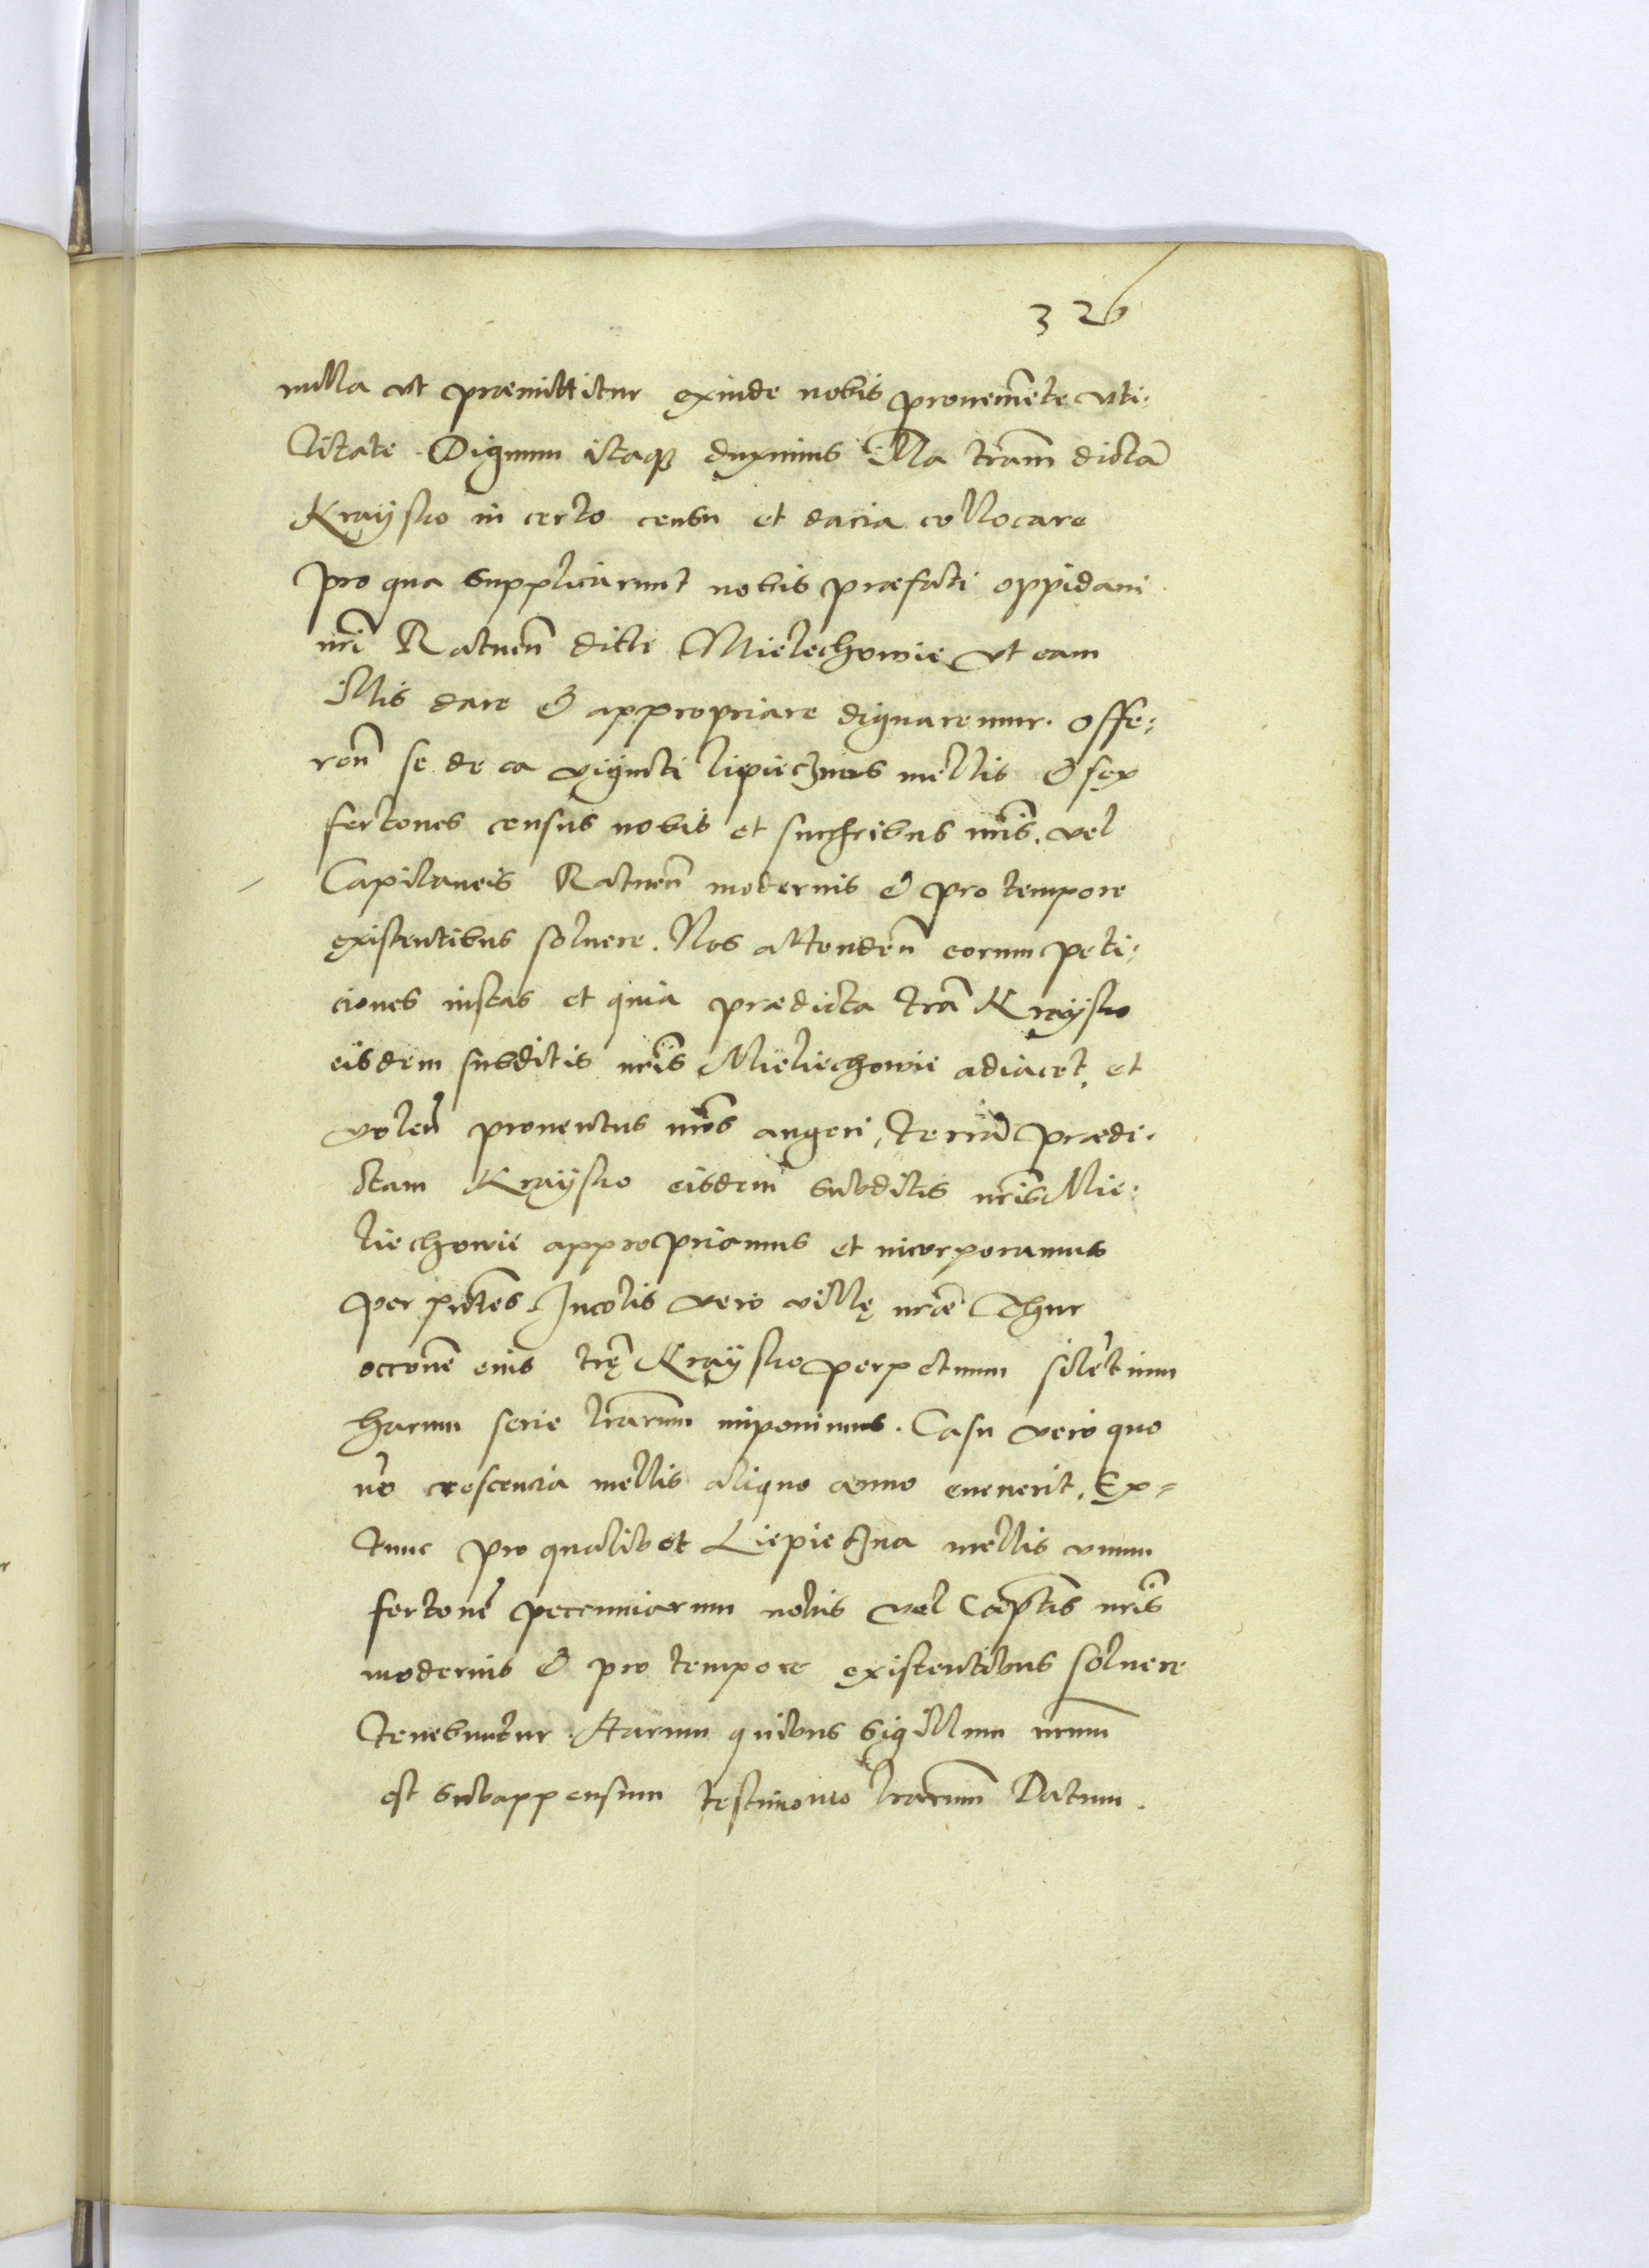 326
nulla ut præmittitur exinde nobis proueniẽte vti:
litate. Dignum itaq₃ duximus Illã trãm dictã
Kraysko in certo censu et dacia collocare
pro qua supplicarunt nobis præfati oppidani
nr̃i Ratneñ dicti Mielechowie, vt eam
Illis dare & appropriare dignaremur. offe:
reñ se de ea viginti lipiecznas mellis & sex
fertones census nobis et succribus nr̃is. vel
Capitaneis Ratneñ modernis & pro tempore
existentibus soluere. Nos attendeñ eorum peti:
ciones iustas et quia prædicta trã Kraysko
eisdem subditis nr̃is Mieliechowie adiacet, et
voleñ prouentus nr̃os augeri, terrã prædi:
ctam Kraysko eisdem subditis nr̃is Mie:
liechowie appropriamus et incorporamus
per pñtes. Incolis vero villę nr̃æ Thur
occonẽ eius trę̃ Kraysko perpetuum silẽtium
harum serie lr̃arum imponimus. Casu vero quo
nõ crescencia mellis aliquo anno euenerit. Ex=
tunc pro qualibet Liepieczna mellis vnum
fertonẽ pecuniarum nobis vel Captis nr̃is
modernis & pro tempore existentibus soluere
tenebuntur. Harum quibus sigillum nr̃um
est subappensum testimonio lr̃arum Datum.